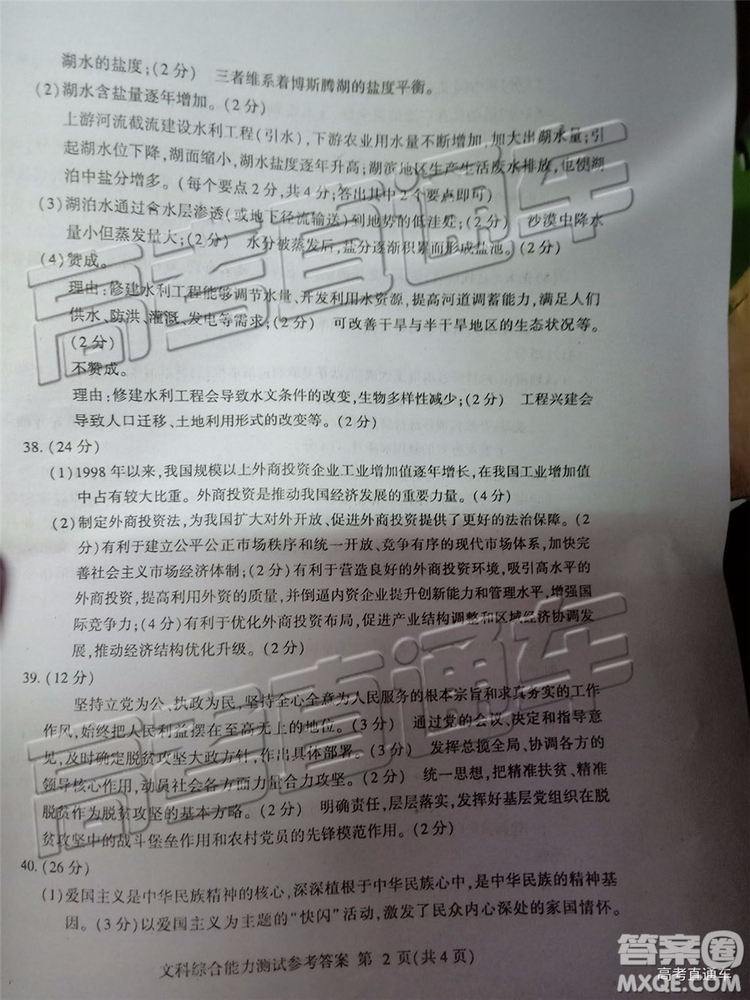 湖水的盐度;(2分) 三者维系着博斯腾湖的盐度平衡。
(2)湖水含盐量逐年增加。(2分)
上游河流截流建设水利工程(引水),下游农业用水量不断增加,加大出湖水量;引
起湖水位下降,湖面缩小,湖水盐度逐年升高;湖滨地区生产生活废水排放,也使湖
泊中盐分增多。(每个要点2分,共4分;答出其中2个要点即可)
(3)湖泊水通过含水层渗透(或地下径流输送)到地势的低洼处;(2分) 沙漠中降水
量小但蒸发量大;(2分) 水分被蒸发后,盐分逐渐积累而形成盐池。(2分)
(4)赞成。
理由:修建水利工程能够调节水量、开发利用水资源,提高河道调蓄能力,满足人们
供水、防洪、灌溉、发电等需求;(2分) 可改善干旱与半干旱地区的生态状况等。
(2分)
不赞成。
理由:修建水利工程会导致水文条件的改变,生物多样性减少;(2分) 工程兴建会
导致人口迁移、土地利用形式的改变等。(2分)
38.(24分)
(1)1998年以来,我国规模以上外商投资企业工业增加值逐年增长,在我国工业增加值
中占有较大比重。外商投资是推动我国经济发展的重要力量。(4分)
(2)制定外商投资法,为我国扩大对外开放、促进外商投资提供了更好的法治保障。(2
分)有利于建立公平公正市场秩序和统一开放、竞争有序的现代市场体系,加快完
善社会主义市场经济体制;(2分)有利于营造良好的外商投资环境,吸引高水平的
外商投资,提高利用外资的质量,并倒逼内资企业提升创新能力和管理水平,增强国
际竞争力;(4分)有利于优化外商投资布局,促进产业结构调整和区域经济协调发
展,推动经济结构优化升级。(2分)
39.(12分)
坚持立党为公、执政为民,坚持全心全意为人民服务的根本宗旨和求真务实的工作
作风,始终把人民利益摆在至高无上的地位。(3分) 通过党的会议、决定和指导意
见,及时确定脱贫攻坚大政方针,作出具体部署。(3分) 发挥总揽全局、协调各方的
领导核心作用,动员社会各方面力量合力攻坚。(2分) 统一思想,把精准扶贫、精准
脱贫作为脱贫攻坚的基本方略。(2分) 明确责任,层层落实,发挥好基层党组织在脱
贫攻坚中的战斗堡垒作用和农村党员的先锋模范作用。(2分)
40.(26分)
(1)爱国主义是中华民族精神的核心,深深植根于中华民族心中,是中华民族的精神基
因。(3分)以爱国主义为主题的“快闪”活动,激发了民众内心深处的家国情怀。
文科综合能力测试参考答案 第 2 页(共4页)
高考直通车
高考直通车
答案圈
MXQE.COM
高考直通车